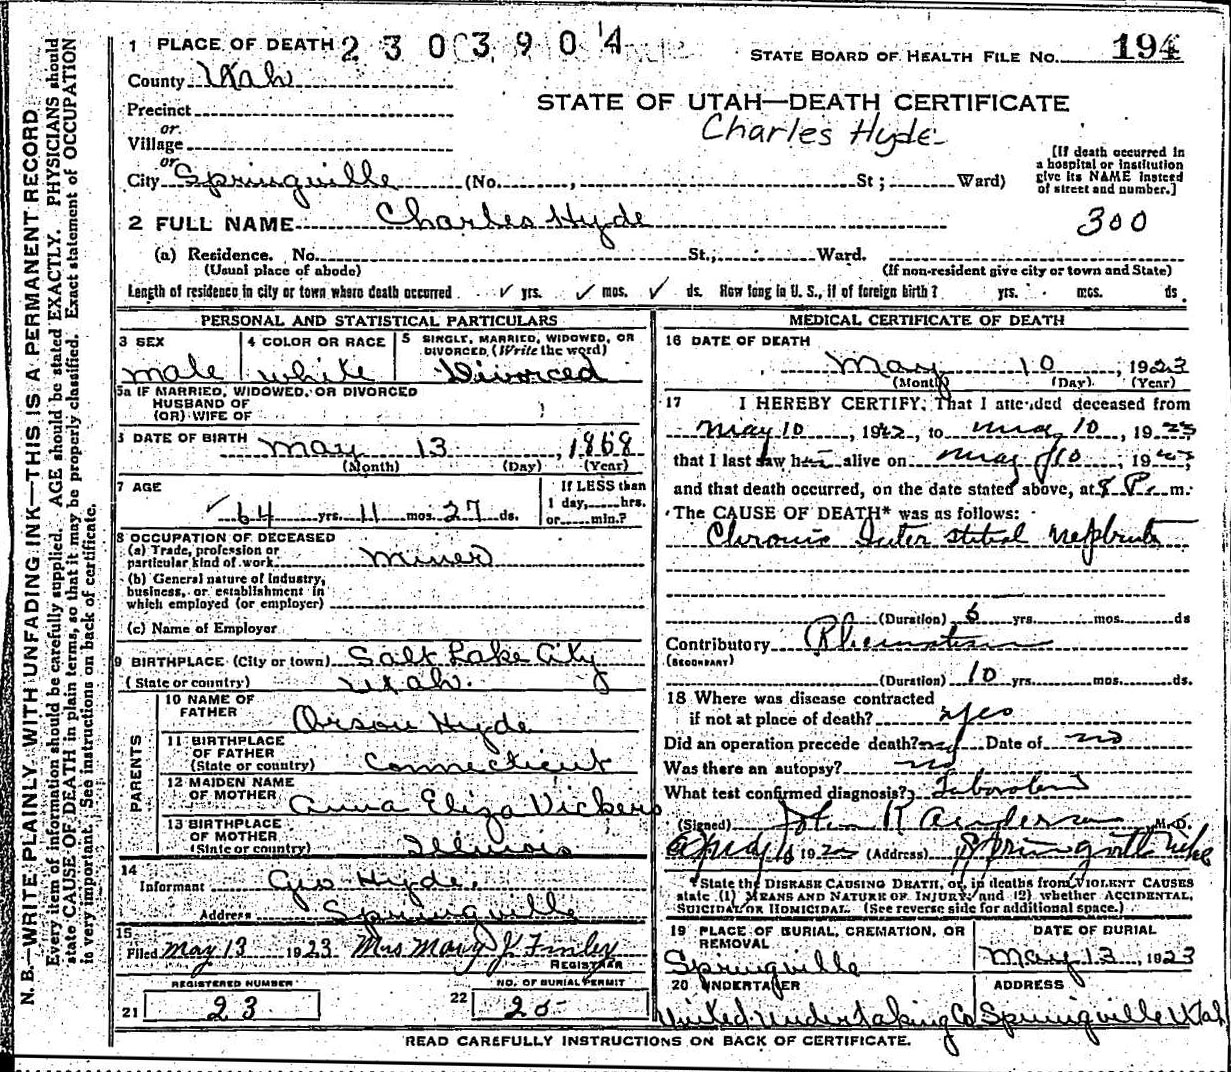 N. B.—WRITE PLAINLY, WITH UNFADING INK—THIS IS A PERMANENT RECORD
Every item of information should be carefully supplied. AGE should be stated EXACTLY. PHYSICIANS should
state CAUSE OF DEATH in plain terms, so that it may be properly classified. Exact statement of OCCUPATION
is very important. See instructions on back of certificate.
1 PLACE OF DEATH 2303904
STATE BOARD OF HEALTH FILE NO. 194
County Utah
STATE OF UTAH—DEATH CERTIFICATE
Precinct
Charles Hyde
or
Village
or
City Springville (No. , St; Ward)
[If death occurred in
a hospital or institution
give its NAME instead
of street and number.]
2 FULL NAME Charles Hyde
300
(a) Residence. No. St., Ward.
(Usual place of abode) (If non-resident give city or town and State)
Length of residence in city or town where death occurred ✓ yrs. ✓ mos. ✓ ds. How long in U. S., if of foreign birth? yrs. mos. ds.
PERSONAL AND STATISTICAL PARTICULARS
3 SEX male
4 COLOR OR RACE white
5 SINGLE, MARRIED, WIDOWED, OR
DIVORCED, (Write the word)
Divorced
5a IF MARRIED, WIDOWED, OR DIVORCED
HUSBAND OF
(OR) WIFE OF
6 DATE OF BIRTH May 13, 1868
(Month) (Day) (Year)
7 AGE ✓ 64 yrs. 11 mos. 27 ds.
If LESS than
1 day, hrs.
or min.?
8 OCCUPATION OF DECEASED
(a) Trade, profession or
particular kind of work Miner
(b) General nature of industry,
business, or establishment in
which employed (or employer)
(c) Name of Employer
9 BIRTHPLACE (City or town) Salt Lake City
(State or country) Utah.
PARENTS
10 NAME OF
FATHER Orson Hyde
11 BIRTHPLACE
OF FATHER
(State or country) Connecticut
12 MAIDEN NAME
OF MOTHER Anna Eliza Vickers
13 BIRTHPLACE
OF MOTHER
(State or country) Illinois
14
Informant Geo Hyde.
Address Springville
15
Filed May 13 1923 Mrs Mary J. Finley
REGISTRAR
REGISTERED NUMBER
21 23
NO. OF BURIAL PERMIT
22 20
MEDICAL CERTIFICATE OF DEATH
16 DATE OF DEATH
May 10, 1923
(Month) (Day) (Year)
17 I HEREBY CERTIFY, That I attended deceased from
May 10, 19 , to May 10, 1923
that I last saw him alive on May 10, 19
and that death occurred, on the date stated above, at 8 P. m.
The CAUSE OF DEATH* was as follows:
Chronic Interstitial Nephritis
(Duration) 6 yrs. mos. ds
Contributory Rheumatism
(SECONDARY)
(Duration) 10 yrs. mos. ds.
18 Where was disease contracted
if not at place of death? yes
Did an operation precede death? no Date of no
Was there an autopsy? no
What test confirmed diagnosis?
(Signed) John R Anderson M. D.
19 (Address) Springville Utah
*State the DISEASE CAUSING DEATH, or, in deaths from VIOLENT CAUSES
state (1) MEANS AND NATURE OF INJURY, and (2) whether ACCIDENTAL,
SUICIDAL OR HOMICIDAL. (See reverse side for additional space.)
19 PLACE OF BURIAL, CREMATION, OR
REMOVAL
Springville
DATE OF BURIAL
May 13, 1923
20 UNDERTAKER
United Undertaking Co
ADDRESS
Springville Utah
READ CAREFULLY INSTRUCTIONS ON BACK OF CERTIFICATE.